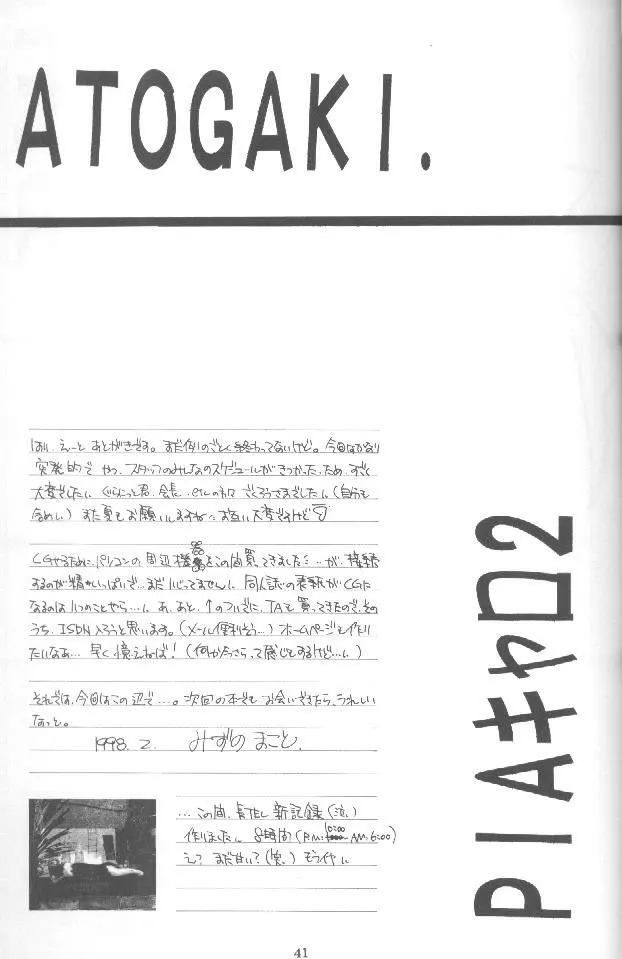 ATOGAKI.
はい、えーと あとがきです。まだ例のごとく終わってないけど。今回はかなり
突発的で やつ、スタッフのみんなのスケジュールがきつかった、ため、すごく
大変でした、 会長、etcの ごくろうさまでした、(自分も
含め、) また夏もお願いしますね お互い大変ですけど
CGやるために、パソコンの周辺機器をこの間買ってきました…が、接続
するのが精いっぱいで…まだいじってません、同人誌の表紙がCGに
なるのはいつのことやら…、あ、あと、↑のついでに、TAも買ってきたので、その
うち、ISDN入ろうと思います。(メール便利そう…)ホームページも作り
たいなぁ… 早く憶えねば!(何が今さら、って感じもするけど…、)
それでは、今回はこの辺で…。次回の本でも お会いできたら、うれしい
なっと。
1998. 2. みずの まこと.
…この間、長TEL新記録(泣)
作りました、8時間(P.M.10:00 AM.6:00)
え? まだ甘い?(笑) もうイヤ、
PIAキャロ2
41